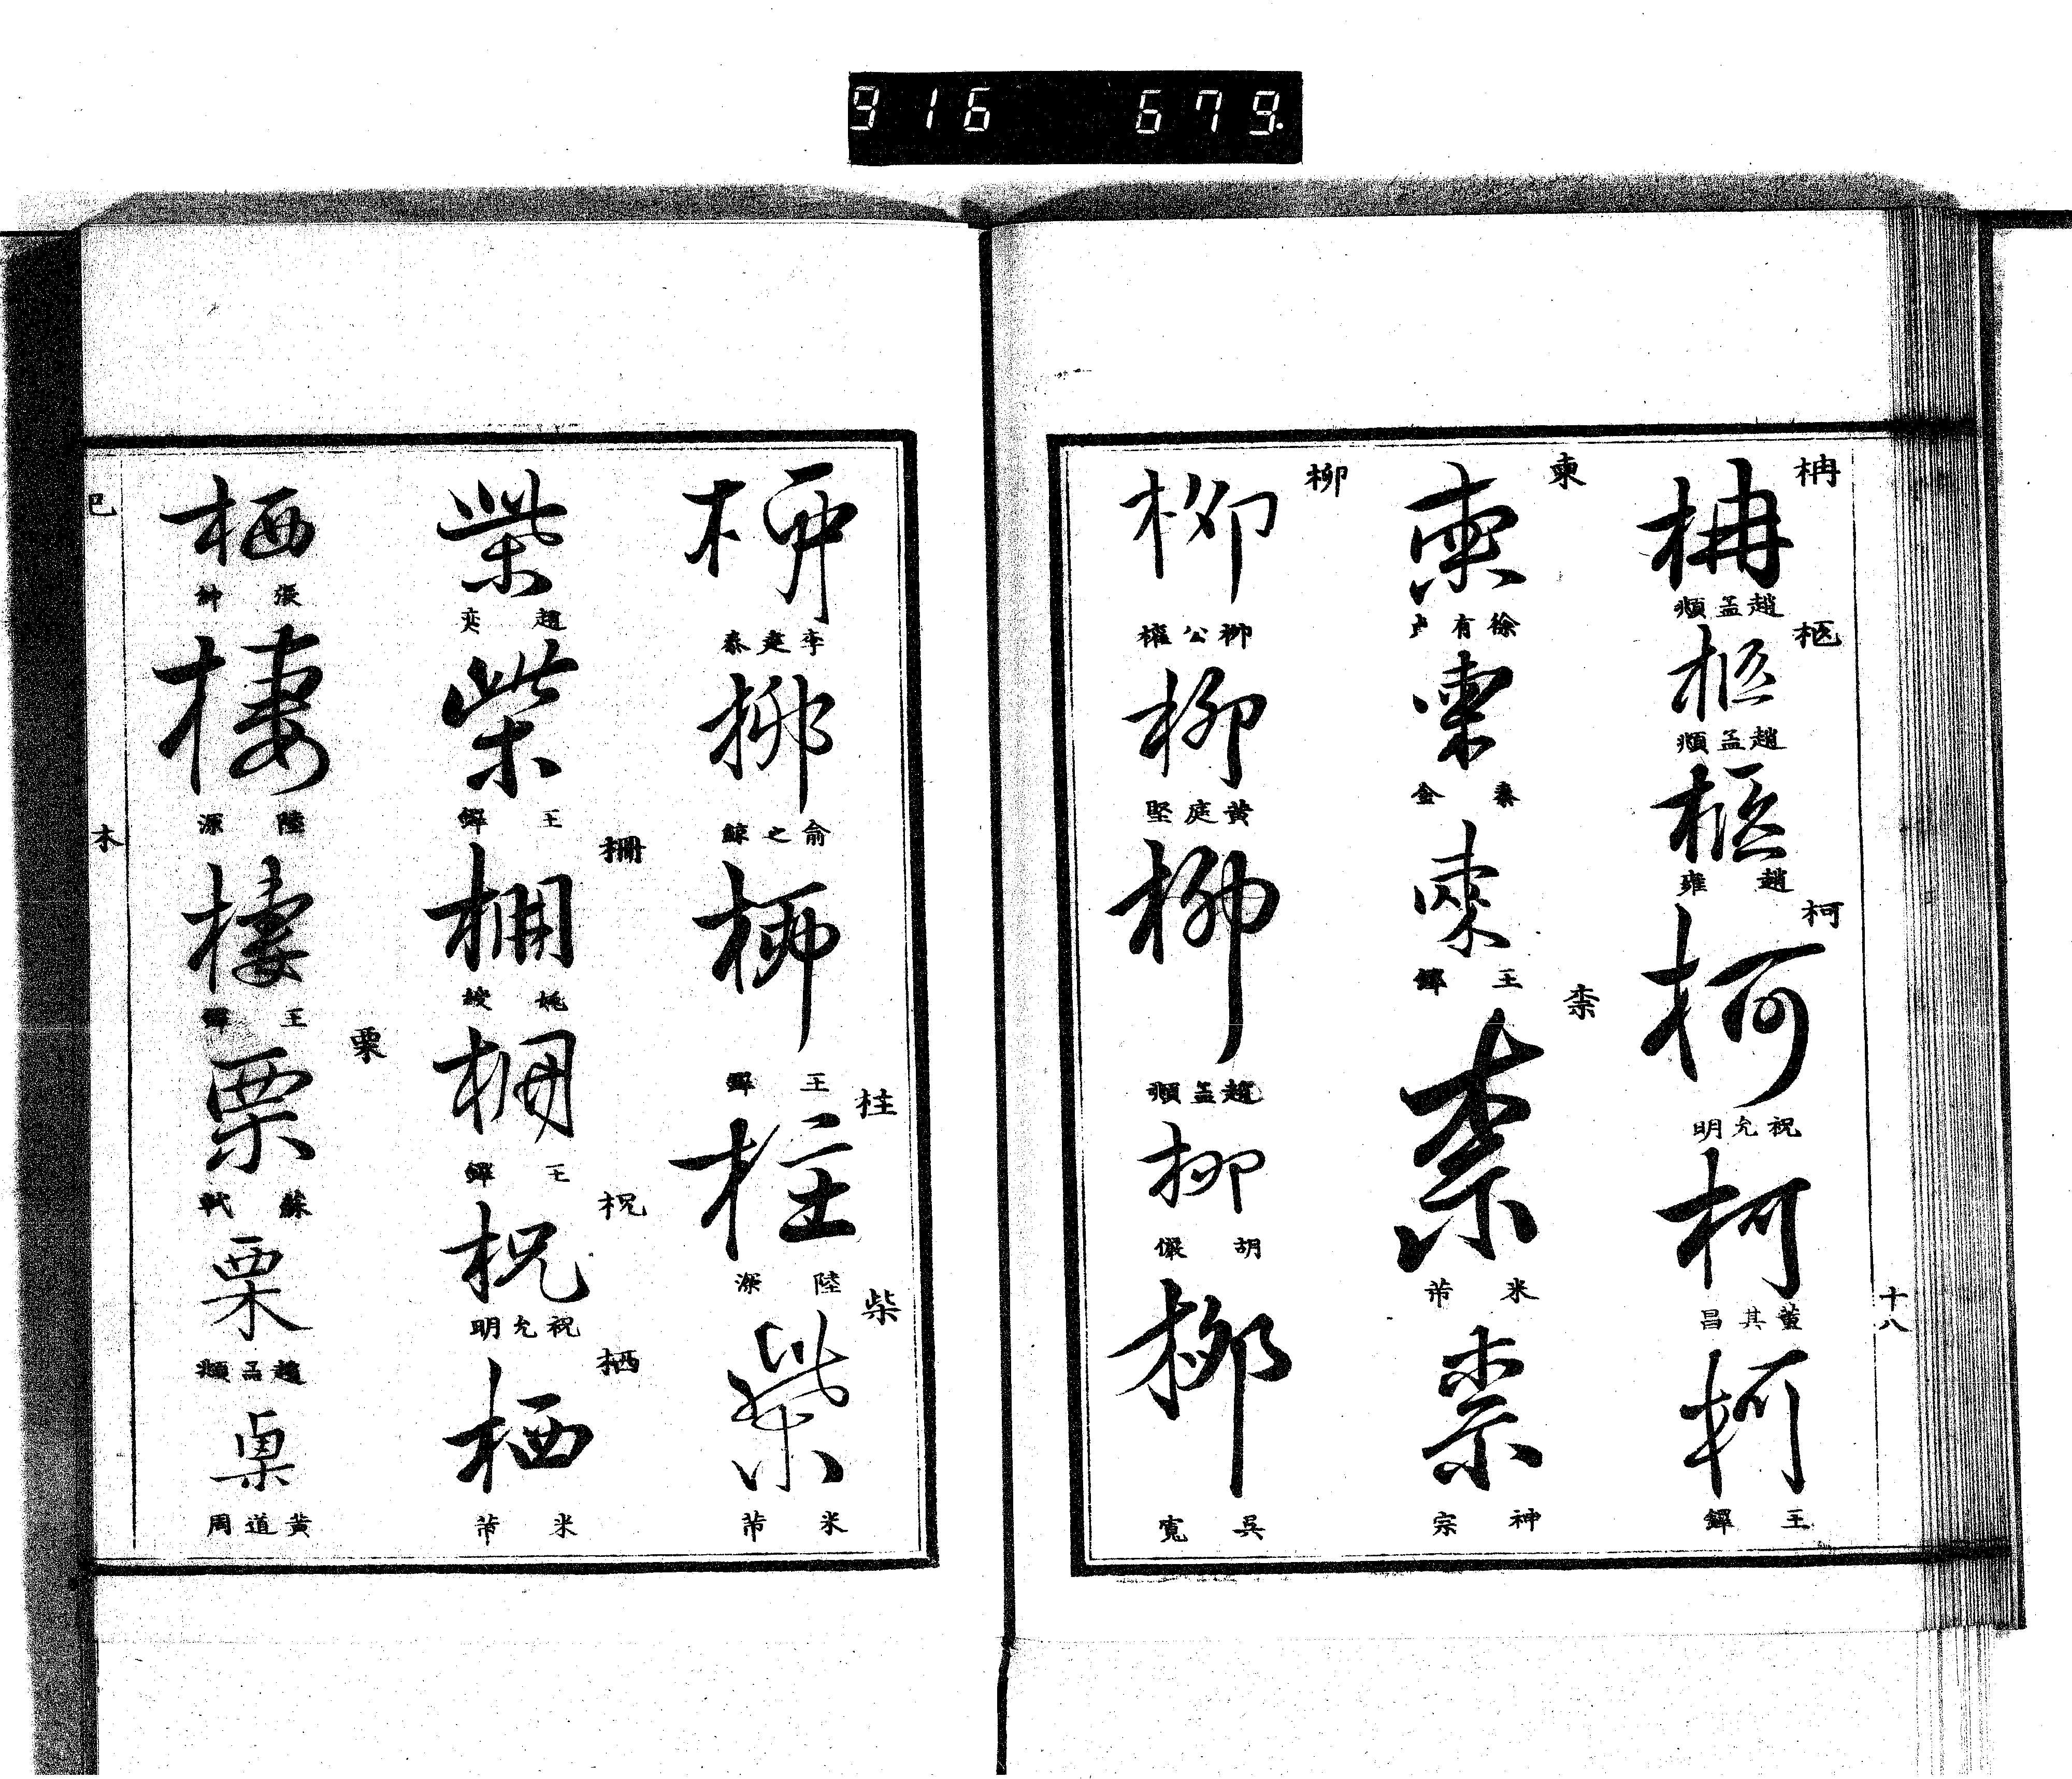 916 679.
十八
枏
枏
趙孟頫
柩
柩
趙孟頫
柩
趙雍
柯
柯
祝允明
柯
董其昌
柯
王鐸
柬
柬
徐有
柬
秦金
柬
王鐸
柰
柰
米芾
柰
神宗
柳
柳
柳公權
柳
黃庭堅
柳
趙孟頫
柳
胡儼
柳
吳寬
柳
李建泰
柳
俞之鯨
柳
王鐸
柱
柱
陸深
柴
柴
米芾
柴
趙奕
柴
王鐸
柵
柵
姚綬
柵
王鐸
柷
柷
祝允明
栖
栖
米芾
栖
張紳
棲
陸深
棲
王鐸
栗
栗
蘇軾
栗
趙孟頫
㮚
黃道周
巳
木